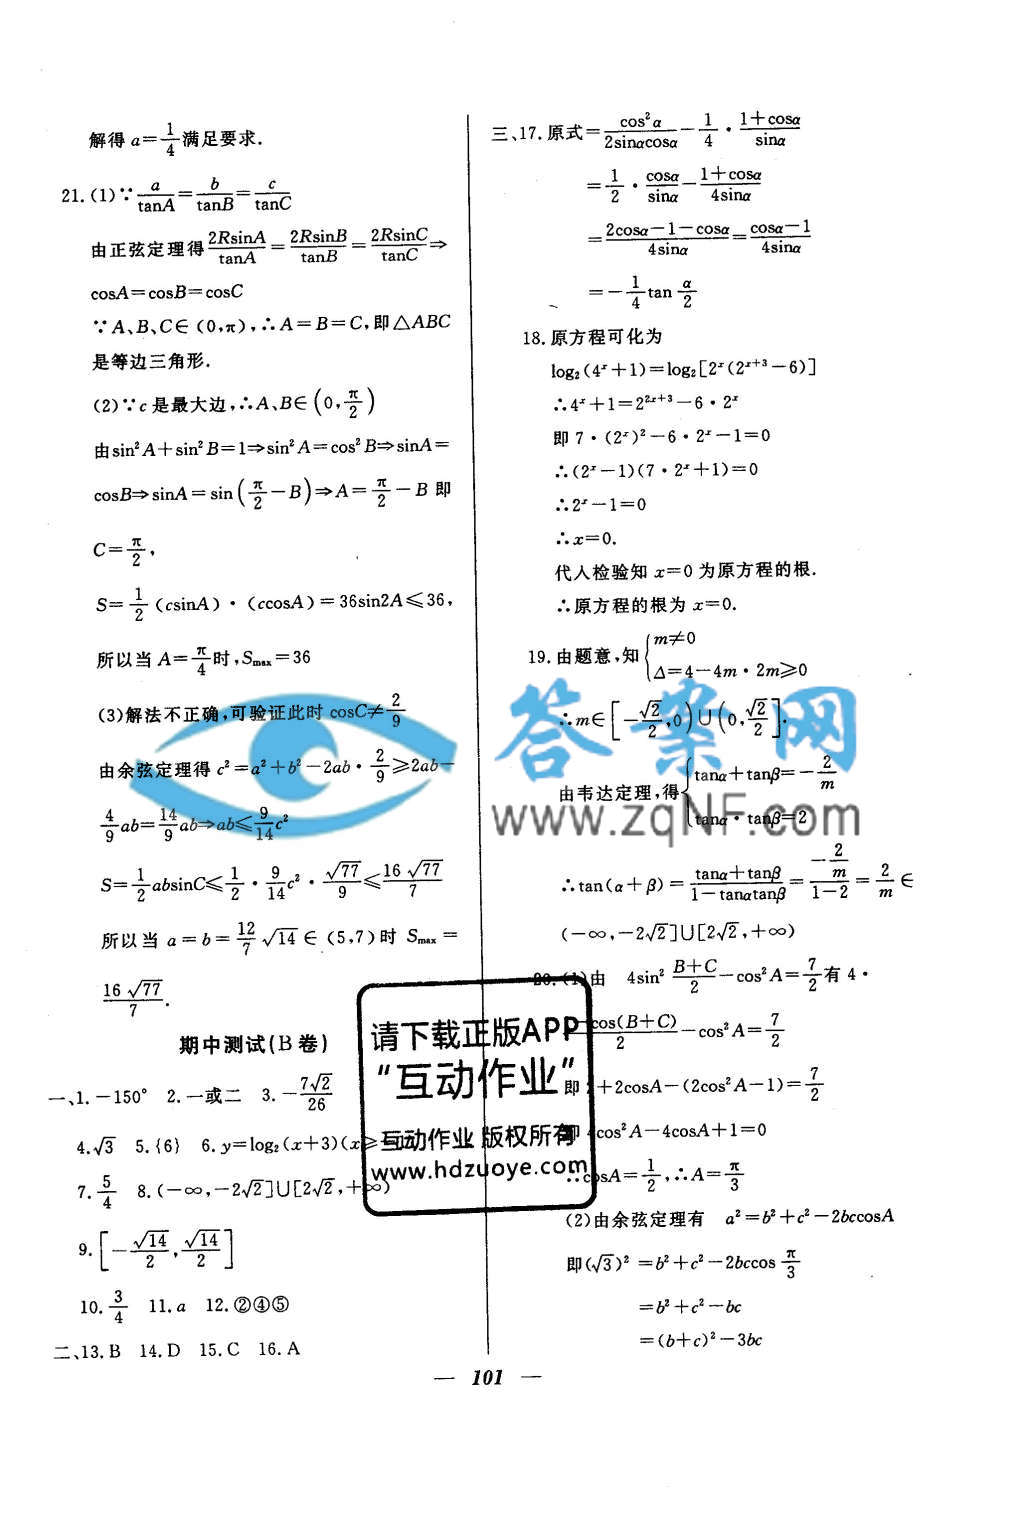 解得 a=1/4 满足要求.
21.(1)∵ a/tanA = b/tanB = c/tanC
由正弦定理得 2RsinA/tanA = 2RsinB/tanB = 2RsinC/tanC ⇒
cosA=cosB=cosC
∵A、B、C∈(0,π),∴A=B=C,即△ABC
是等边三角形.
(2)∵c 是最大边,∴A、B∈(0,π/2)
由sin²A+sin²B=1⇒sin²A=cos²B⇒sinA=
cosB⇒sinA=sin(π/2-B)⇒A=π/2-B 即
C=π/2,
S=1/2(csinA)·(ccosA)=36sin2A≤36,
所以当 A=π/4时,Smax=36
(3)解法不正确,可验证此时 cosC≠2/9
由余弦定理得 c²=a²+b²-2ab·2/9≥2ab-
4/9ab=14/9ab⇒ab≤9/14c²
S=1/2absinC≤1/2·9/14c²·√77/9≤16√77/7
所以当 a=b=12/7√14∈(5,7)时 Smax=
16√77/7.
期中测试(B 卷)
一、1.-150° 2.一或二 3.-7√2/26
4.√3 5.{6} 6.y=log₂(x+3)(x≥
7.5/4 8.(-∞,-2√2]∪[2√2,+∞)
9.[-√14/2,√14/2]
10.3/4 11.a 12.②④⑤
二、13.B 14.D 15.C 16.A
三、17.原式=cos²α/2sinαcosα-1/4·1+cosα/sinα
=1/2·cosα/sinα-1+cosα/4sinα
=2cosα-1-cosα/4sinα=cosα-1/4sinα
=-1/4tan α/2
18.原方程可化为
log₂(4ˣ+1)=log₂[2ˣ(2ˣ⁺³-6)]
∴4ˣ+1=2²ˣ⁺³-6·2ˣ
即 7·(2ˣ)²-6·2ˣ-1=0
∴(2ˣ-1)(7·2ˣ+1)=0
∴2ˣ-1=0
∴x=0.
代人检验知 x=0 为原方程的根.
∴原方程的根为 x=0.
19.由题意,知{m≠0
Δ=4-4m·2m≥0
∴m∈[-√2/2,0)∪(0,√2/2].
由韦达定理,得{tanα+tanβ=-2/m
tanα·tanβ=2
∴tan(α+β)=tanα+tanβ/1-tanαtanβ=-2/m/1-2=2/m∈
(-∞,-2√2]∪[2√2,+∞)
20.(1)由 4sin² B+C/2-cos²A=7/2有 4·
cos(B+C)/2-cos²A=7/2
即 2+2cosA-(2cos²A-1)=7/2
即 4cos²A-4cosA+1=0
∴cosA=1/2,∴A=π/3
(2)由余弦定理有 a²=b²+c²-2bccosA
即(√3)²=b²+c²-2bccos π/3
=b²+c²-bc
=(b+c)²-3bc
— 101 —
答案网
www.zqNF.com
请下载正版APP
“互动作业”
互动作业 版权所有
www.hdzuoye.com